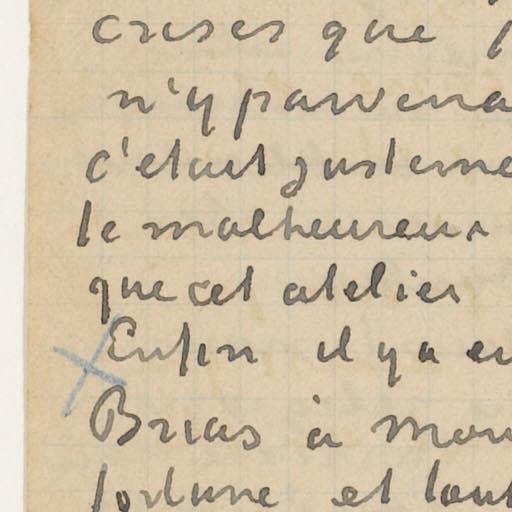 crises que
n'y parvena
c'etait justeme
le malheureux
que cet atelier
Enfin il y a eu
Brias à mon
fortune et tout